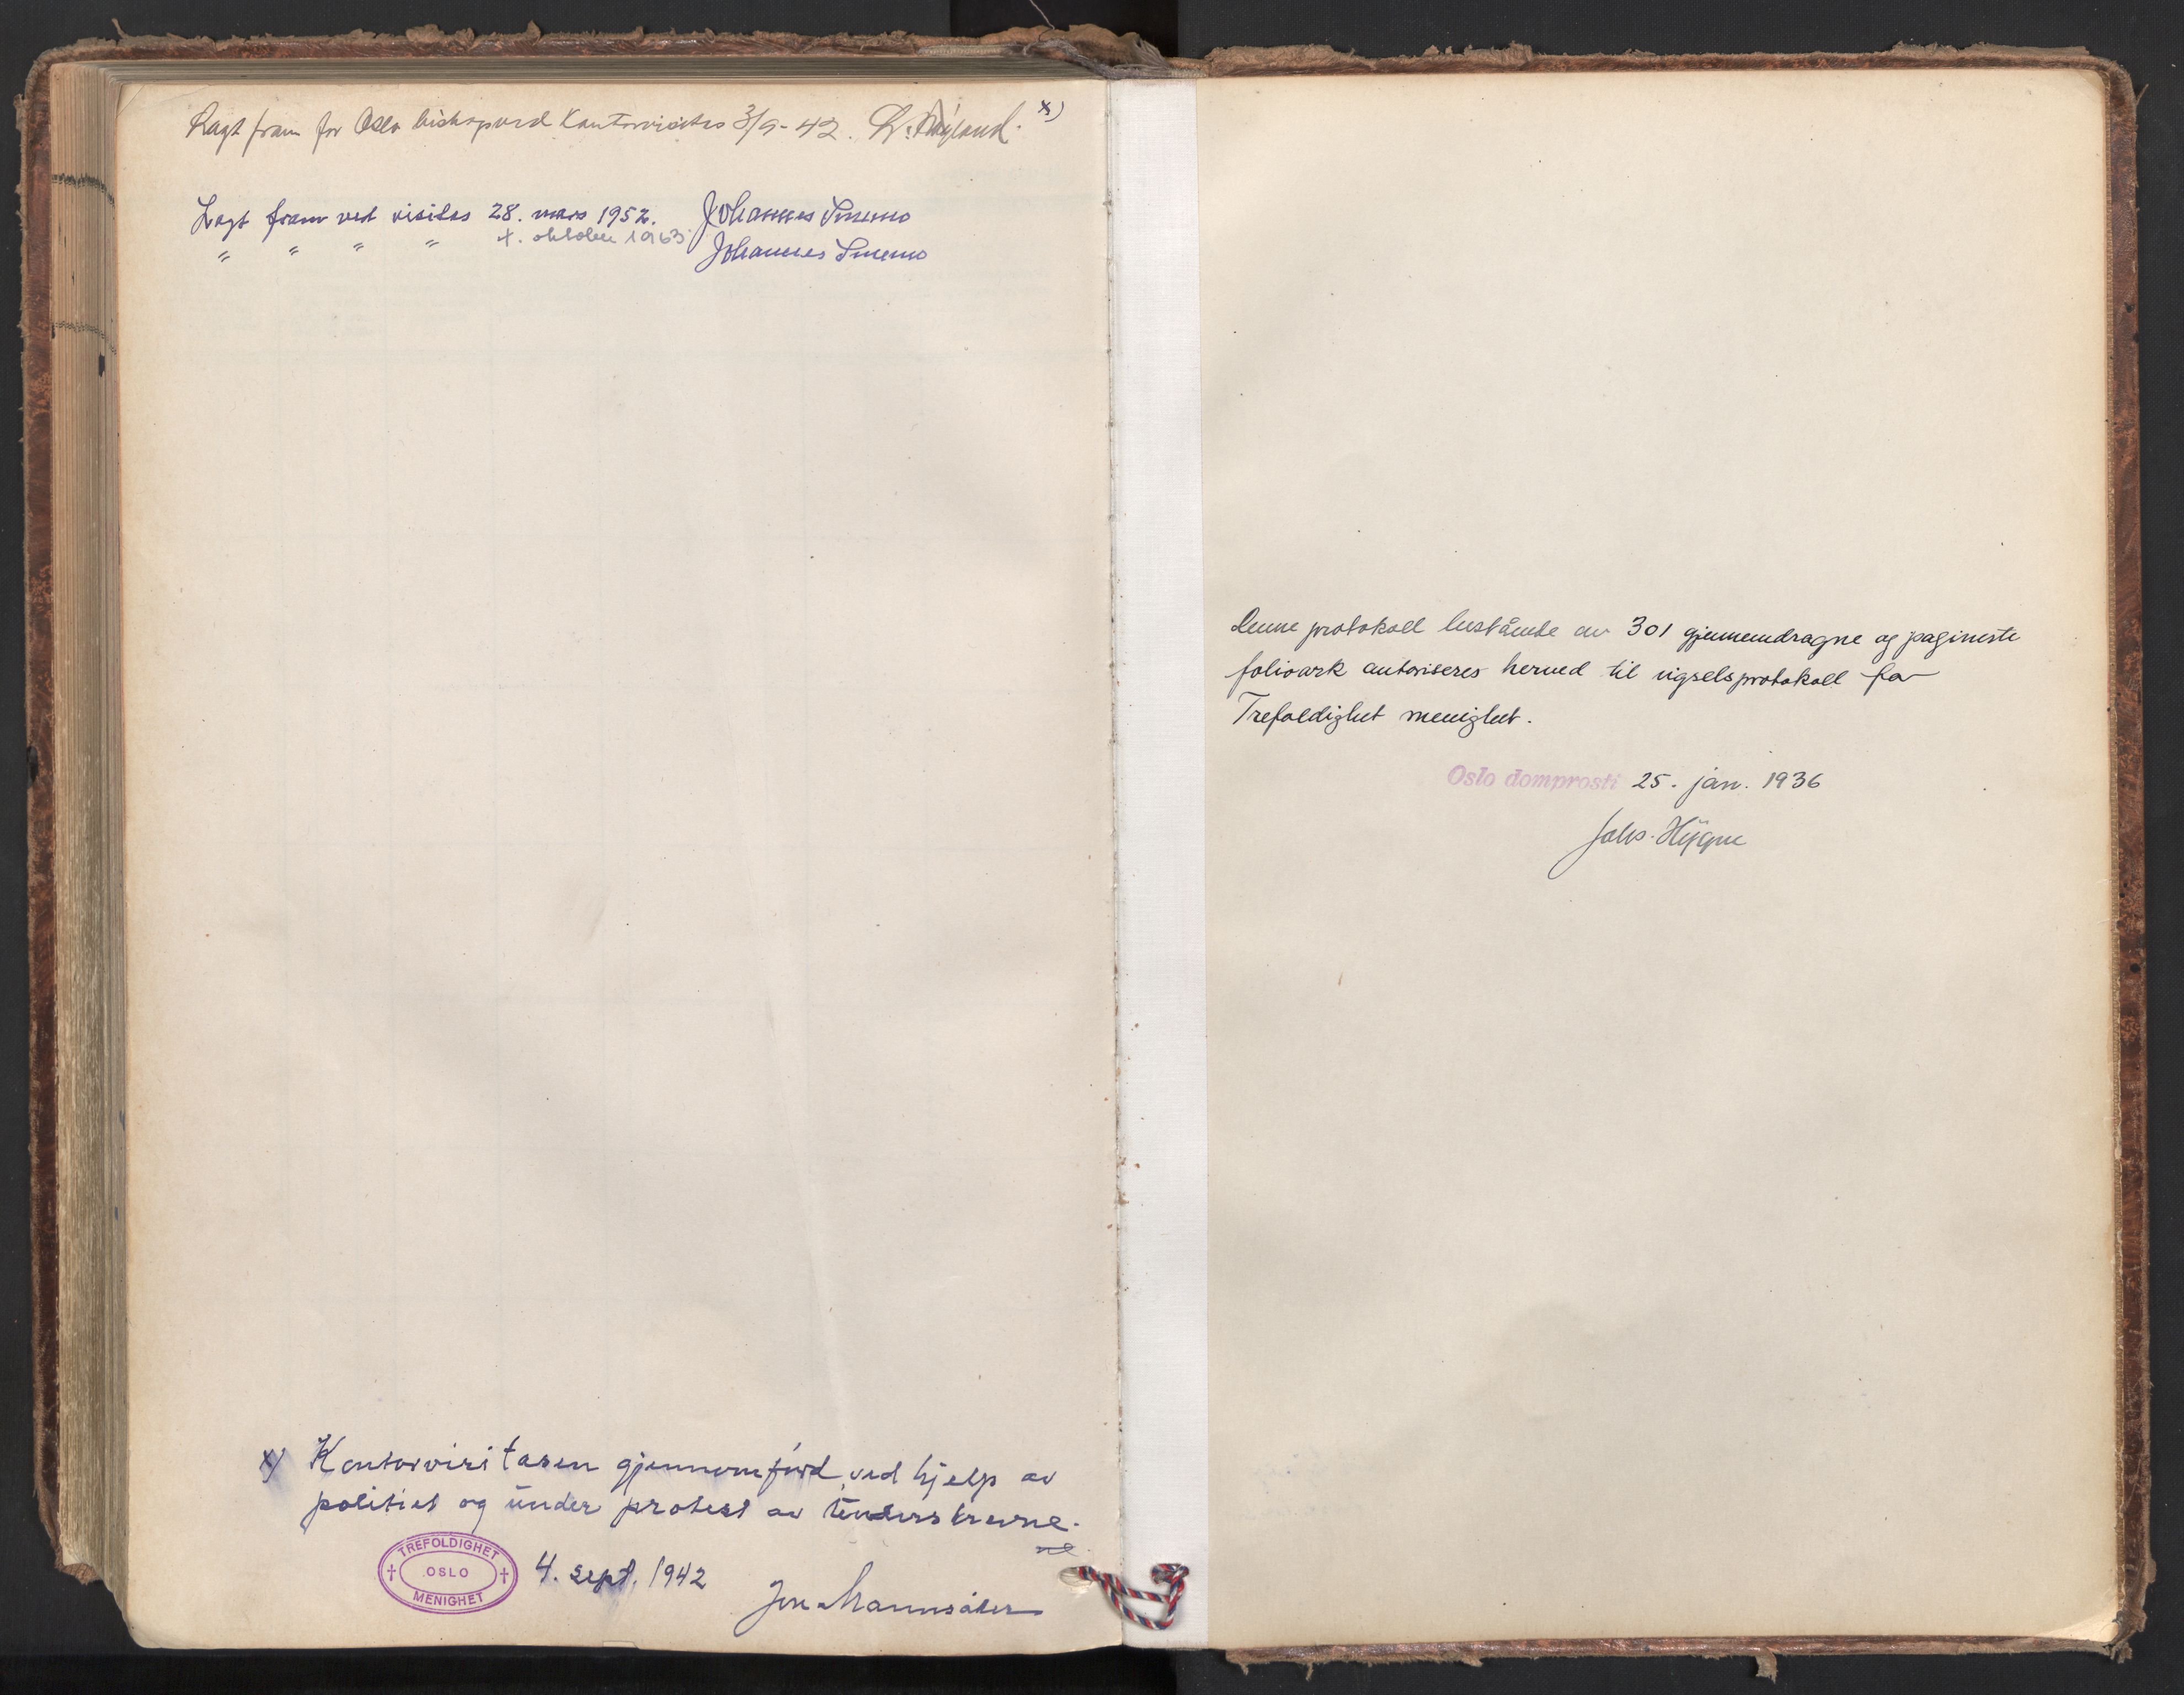 Lagt fram for Oslo bispegard kontorvisitas 3/9-42. x)
Lagt fram ved visitas 28. mars 1952. Johannes Smemo
" " " " 4. oktober 1963 Johannes Smemo
x) Kontorvisitasen gjennomførd ved hjelp av
politiet og under protest av underskrevne.
TREFOLDIGHET OSLO MENIGHET
4. sept. 1942
Jon Mannsåker
Denne protokoll bestående av 301 gjennemdragne og paginerte
folioark autoriseres herved til vigselsprotokoll for
Trefoldighet menighet.
Oslo domprosti 25. jan. 1936
Johs. Hygen